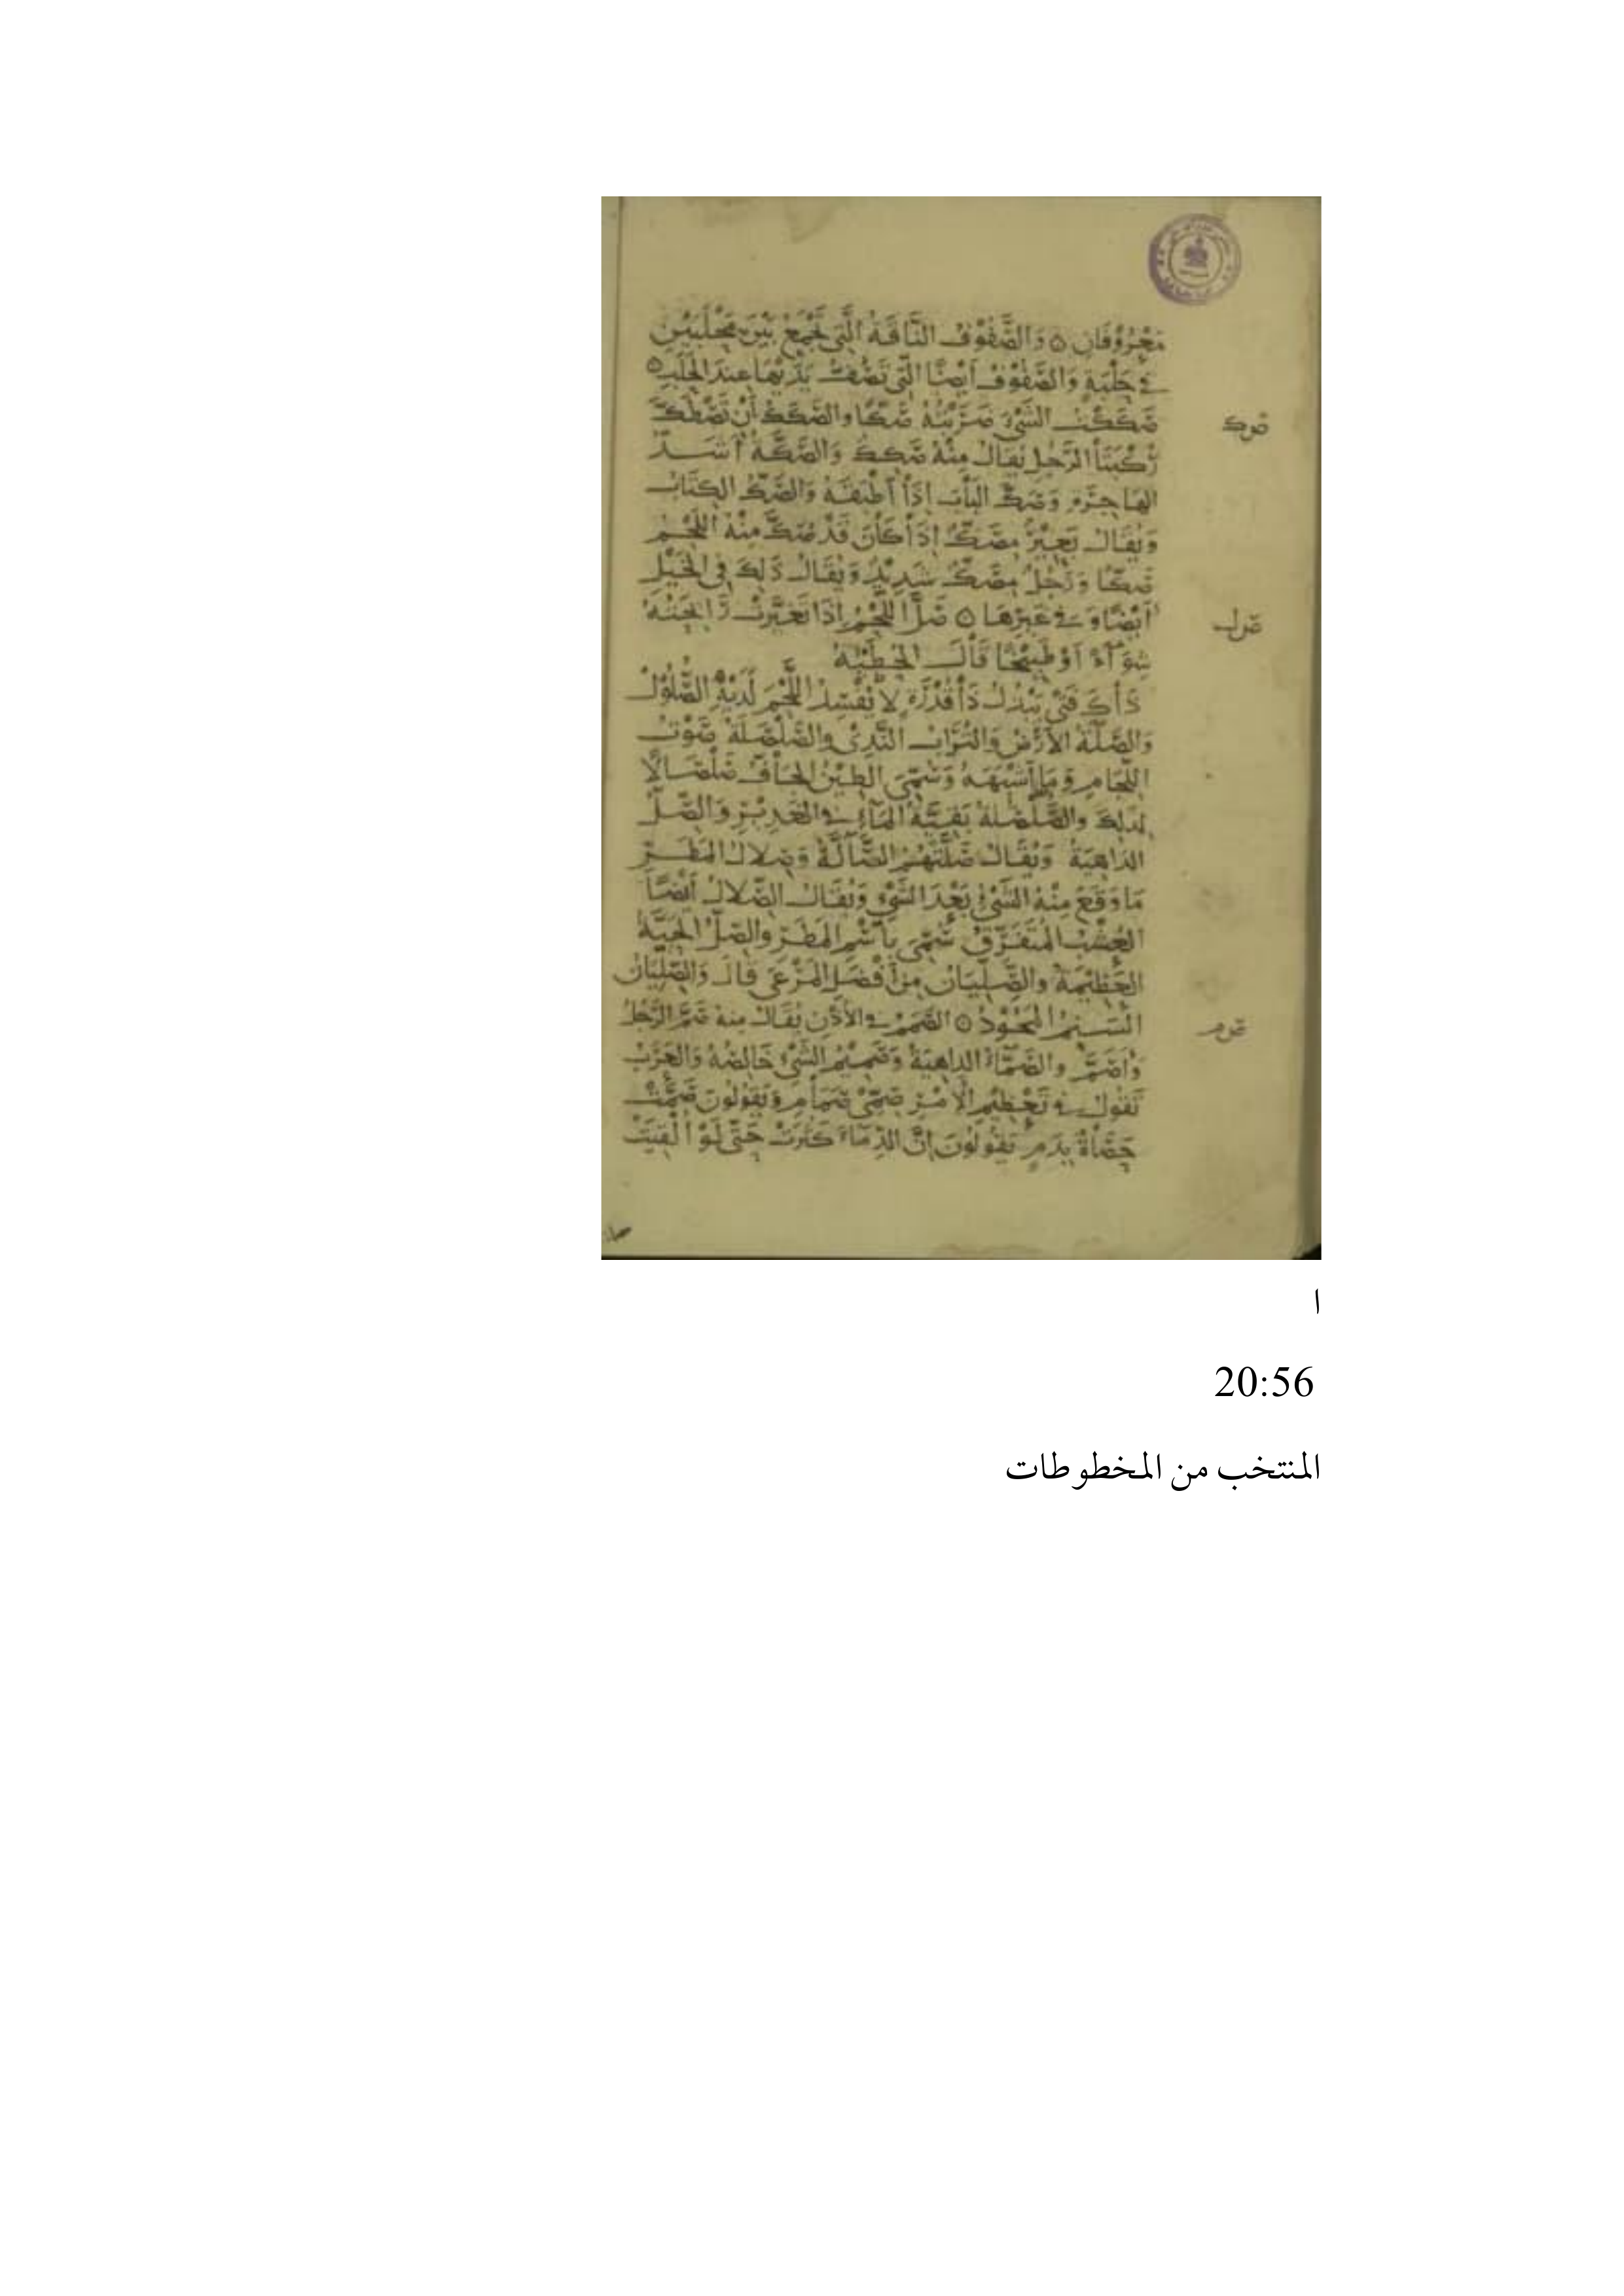 مَعْرُوفَانِ ۞ وَالصَّفُوفُ النَّاقَةُ الَّتِي تَجْمَعُ بَيْنَ مِحْلَبَيْنِ
في حَلْبَةٍ وَالصَّفُوفُ أَيْضًا الَّتِي تَصُفُّ يَدَيْهَا عِندَ الحَلَبِ ۞
صك
صَكَكْتُ الشَّيْءَ ضَرَبْتُهُ صَكًّا والصَّكَكُ أَنْ تَصْطَكَّ
رُكْبَتَا الرَّجُلِ يُقَالُ مِنْهُ صَكِكَ وَالصَّكَّةُ أَشَدُّ
الهاجِرَةِ وَصَكَّ البَابَ إِذَا أَطْبَقَهُ وَالصَّكُّ الكِتَابُ
وَيُقَالُ بَعِيْرٌ مِصَكٌّ إِذَا كَانَ قَدْ صُكَّ مِنْهُ اللَّحْمُ
صَكًّا وَرَجُلٌ مِصَكٌّ شَدِيْدٌ وَيُقَالُ ذَلِكَ فِي الخَيْلِ
أَيْضًا وَفي غَيْرِهَا ۞ صَلَّ اللَّحْمُ إِذَا تَغَيَّرَتْ رَائِحَتُهُ
صل
شِوَآءً أَوْ طَبِيْخًا قَالَ الحُطَيْئَةُ
ذَاكَ فَتًى يَبْذُلُ ذَا قِدْرِهِ لَا يُفْسِدُ اللَّحْمَ لَدَيْهِ الصُّلُوْلُ
وَالصَّلَّةُ الأَرْضُ وَالتُّرَابُ النَّدِيُّ والصَّلْصَلَةُ صَوْتُ
اللِّجَامِ وَمَا أَشْبَهَهُ وَسُمِّيَ الطِّيْنُ الجَافُّ صَلْصَالًا
لِذَلِكَ والصُّلْصُلَةُ بَقِيَّةُ المَآءِ في الغَدِيْرِ وَالصِّلُّ
الدَاهِيَةُ وَيُقَالُ صَلَّتْهُمُ الصَّآلَّةُ وَصِلَالُ المَطَرِ
مَا وَقَعَ مِنْهُ الشَّيْءُ بَعْدَ الشَّيْءِ وَيُقَالُ الصِّلَالُ أَيْضًا
العُشْبُ المُتَفَرِّقُ سُمِّيَ بِاسْمِ المَطَرِ والصِّلُّ الحَيَّةُ
العَظِيْمَةُ والصِّلِّيَانُ مِنْ أَفْضَلِ المَرْعَى قَالَ وَالصِّلِّيَانُ
السَّنِمُ المَجُوْدُ ۞ الصَّمَمُ في الأُذُنِ يُقَالُ مِنْهُ صَمَّ الرَّجُلُ
صم
وَأَصَمَّ والصَّمَّاءُ الدَاهِيَةُ وَصَمِيْمُ الشَّيْءِ خَالِصُهُ وَالعَرَبُ
تَقُولُ في تَعْظِيْمِ الأَمْرِ صَمِّيْ صَمَامِ وَيَقُولُونَ صَمَّتْ
حَصَاةٌ بِدَمٍ يَقُولُونَ إِنَّ الدِّمَاءَ كَثُرَتْ حَتَّى لَوْ أُلْقِيَتْ
ا
20:56
المنتخب من المخطوطات